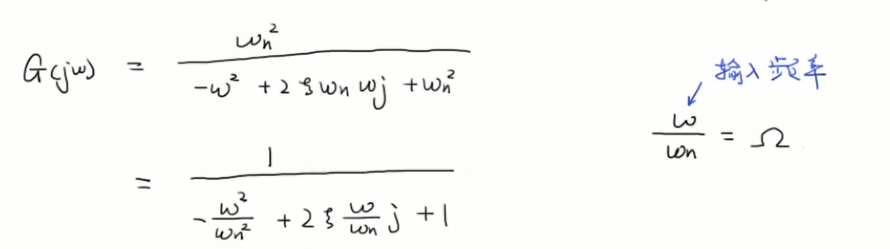 G(jω) = ωn² / (-ω² + 2ξωnωj + ωn²)
= 1 / (-ω²/ωn² + 2ξ ω/ωn j + 1)
输入频率
ω/ωn = Ω